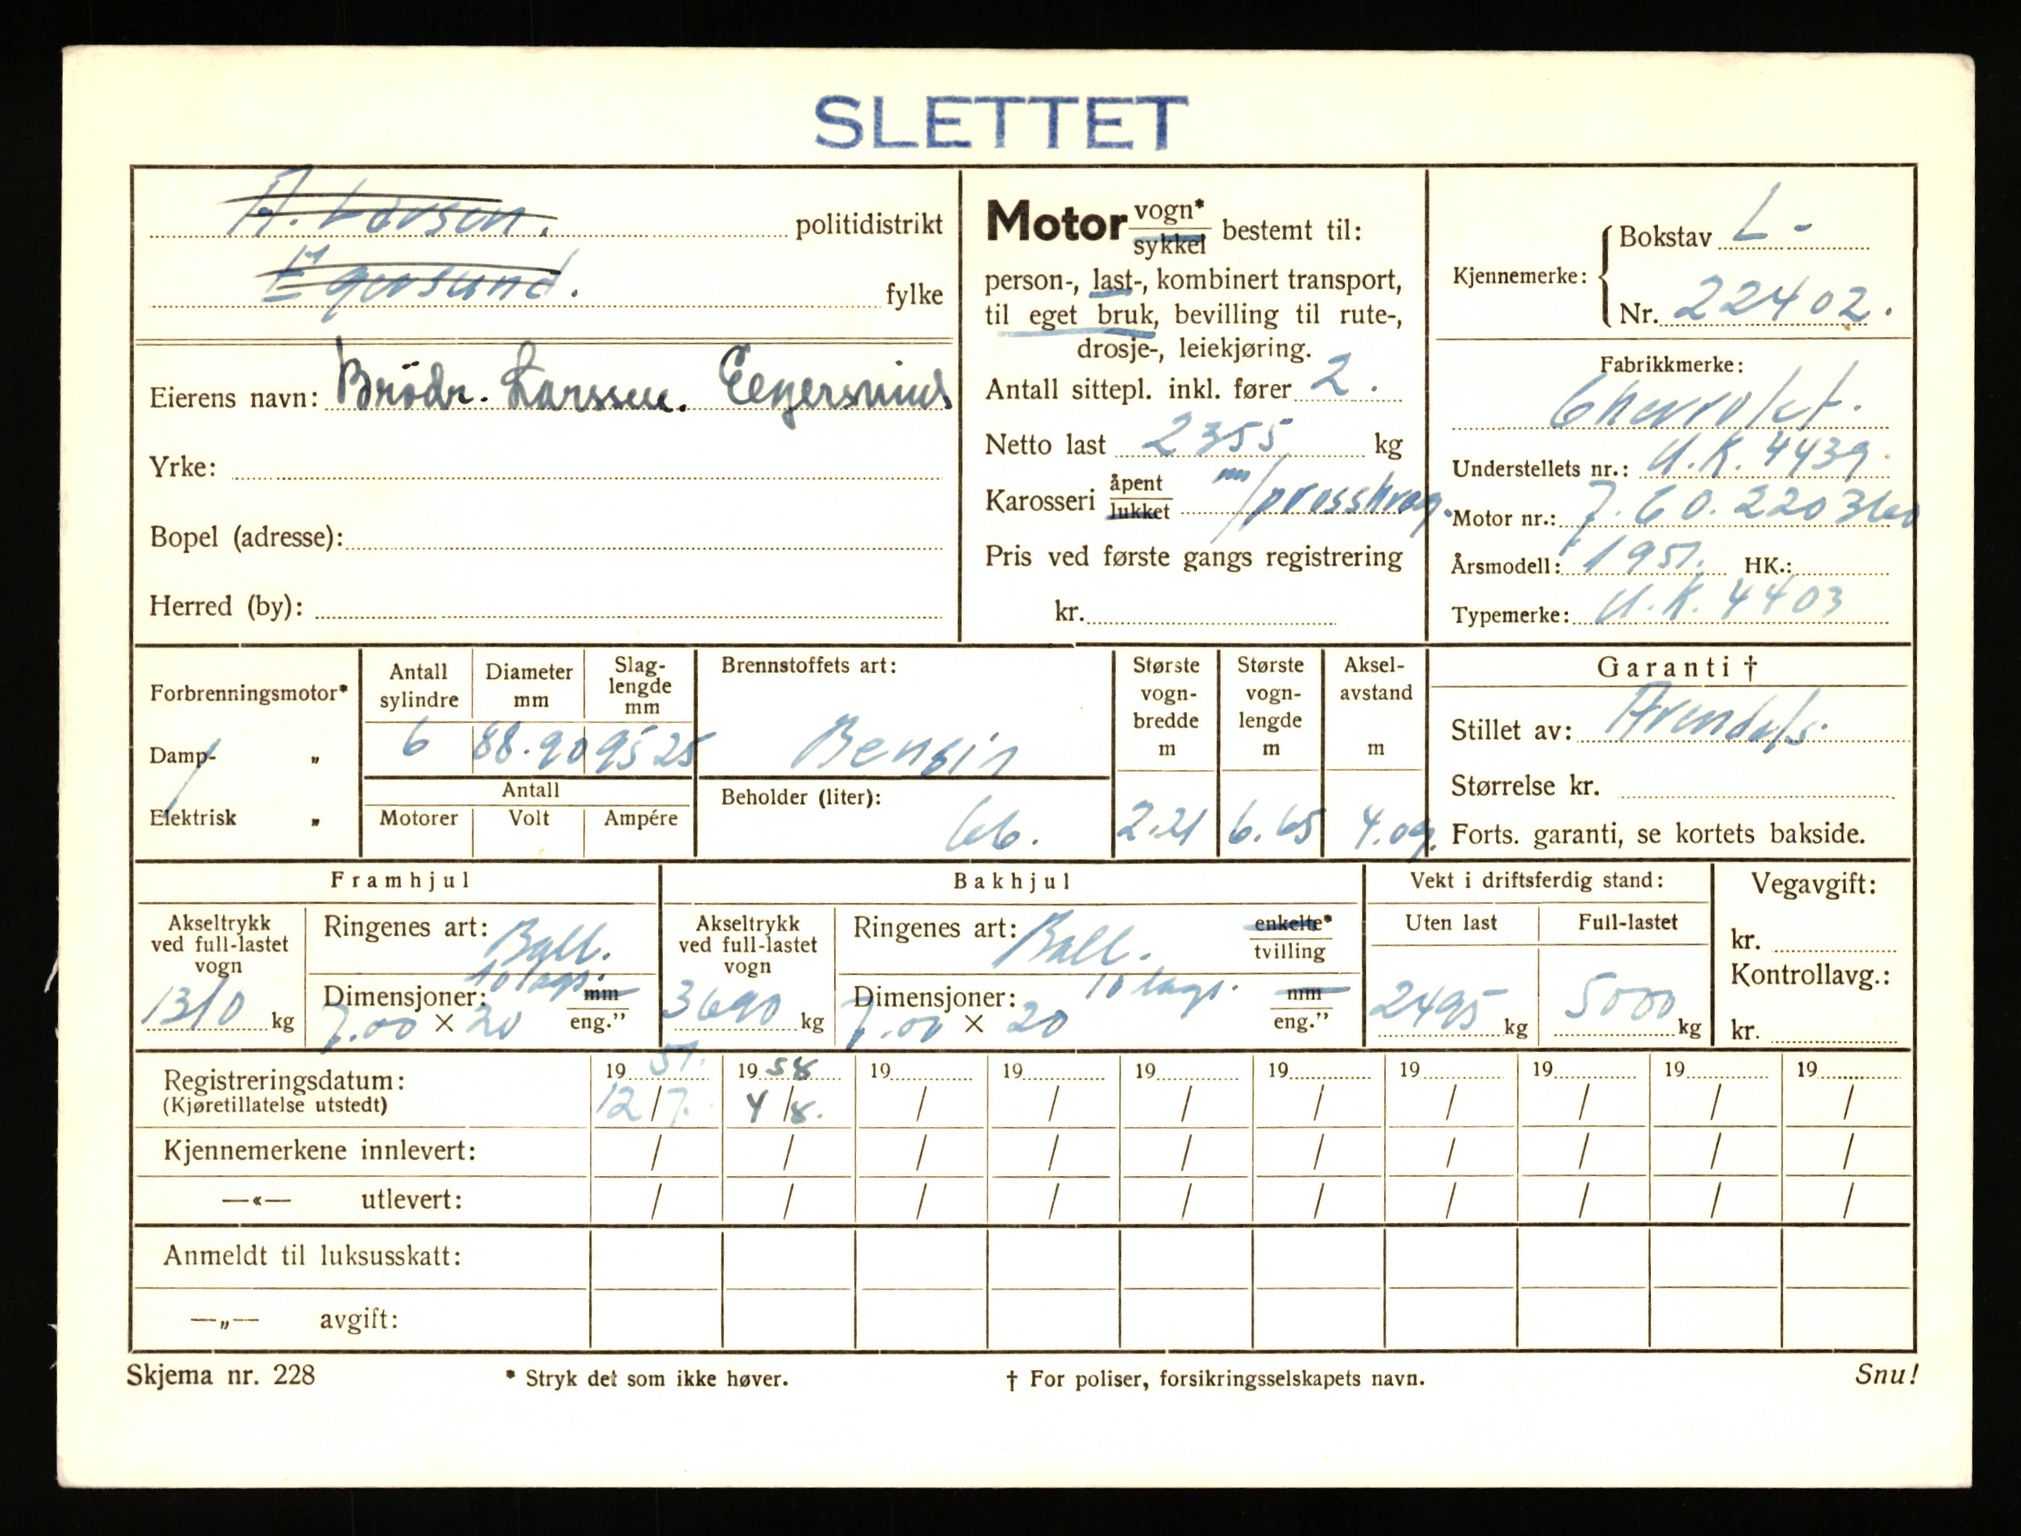 SLETTET
A. Larsen. politidistrikt
Egersund. fylke
Eierens navn: Brödr. Larssen. Egersund
Yrke:
Bopel (adresse):
Herred (by):
Motor vogn* / sykkel bestemt til:
person-, last-, kombinert transport,
til eget bruk, bevilling til rute-,
drosje-, leiekjøring.
Antall sittepl. inkl. fører 2.
Netto last 2355 kg
Karosseri åpent / lukket
Pris ved første gangs registrering
kr.
Kjennemerke: Bokstav L-
Nr. 22402.
Fabrikkmerke:
Chevrolet.
Understellets nr.: U.K. 4439.
Motor nr.:
Årsmodell: 1951. HK.:
Typemerke: U.K. 4403
Forbrenningsmotor*
Damp- „
Elektrisk „
Antall sylindre
Diameter mm
Slag-lengde mm
6 88.90 9525
Antall
Motorer Volt Ampére
Brennstoffets art:
Bensin
Beholder (liter):
66.
Største vogn-bredde m
2.21
Største vogn-lengde m
6.65
Aksel-avstand m
4.09.
Garanti †
Stillet av: Arendals.
Størrelse kr.
Forts. garanti, se kortets bakside.
Framhjul
Akseltrykk ved full-lastet vogn
1310 kg
Ringenes art: Ball.
10 lags.
Dimensjoner: mm
7.00 × 20 eng.”
Bakhjul
Akseltrykk ved full-lastet vogn
3690 kg
Ringenes art: Ball. enkelte* / tvilling
10 lags.
Dimensjoner: mm
7.00 × 20 eng.”
Vekt i driftsferdig stand:
Uten last Full-lastet
2495 kg 5000 kg
Vegavgift:
kr.
Kontrollavg.:
kr.
Registreringsdatum: 19 51. 19 58 19 19 19 19 19 19 19 19
(Kjøretillatelse utstedt) 12/7. 4/8. / / / / / / / /
Kjennemerkene innlevert: / / / / / / / / / /
—«— utlevert: / / / / / / / / / /
Anmeldt til luksusskatt:
—„— avgift:
Skjema nr. 228 * Stryk det som ikke høver. † For poliser, forsikringsselskapets navn. Snu!